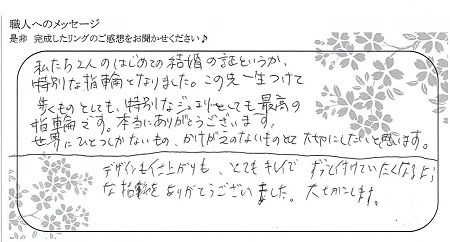 職人へのメッセージ
是非 完成したリングのご感想をお聞かせください♪
私たち2人のはじめての結婚の証というか、
特別な指輪となりました。この先一生つけて
歩くものとしても、特別なジュエリーとしても最高の
指輪です。本当にありがとうございます。
世界にひとつしかないもの、かけがえのないものとして大切にしたいと思います。
デザインも仕上がりも、とてもキレイでずっと付けていたくなるよう
な指輪をありがとうございました。大切にします。